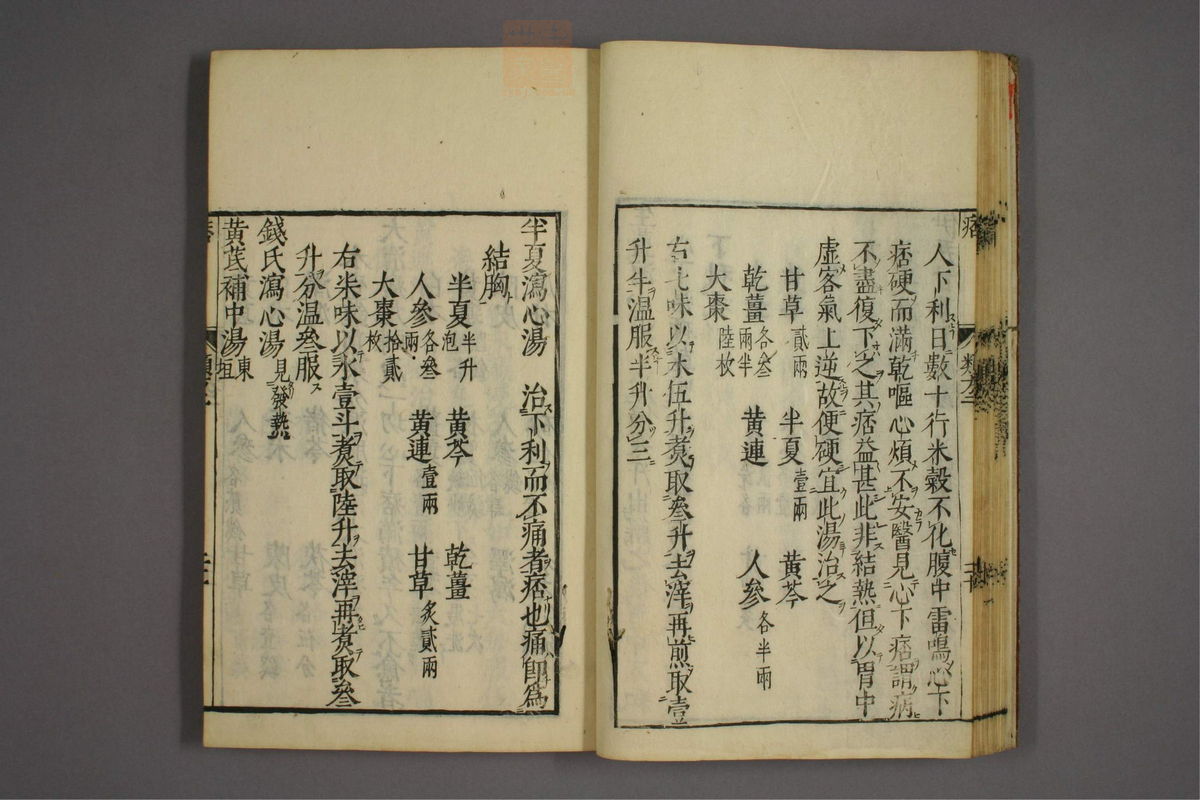 人下利日數十行米穀不化腹中雷鳴心下
痞硬而滿乾嘔心煩不安醫見心下痞謂病
不盡復下之其痞益甚此非結熱但以胃中
虛客氣上逆故便硬宜此湯治之
甘草貳兩 半夏壹兩 黃芩
乾薑各叄兩半 黃連 人參各半兩
大棗陸枚
右七味以水伍升煮取叄升去滓再煎取壹
升半溫服半升分三
半夏瀉心湯 治下利而不痛者痞也痛即為
結胸
半夏半升泡 黃芩 乾薑
人參各叄兩 黃連壹兩 甘草炙貳兩
大棗拾貳枚
右柒味以水壹斗煮取陸升去滓再煮取叄
升分溫叄服
錢氏瀉心湯見發熱
黃芪補中湯東垣